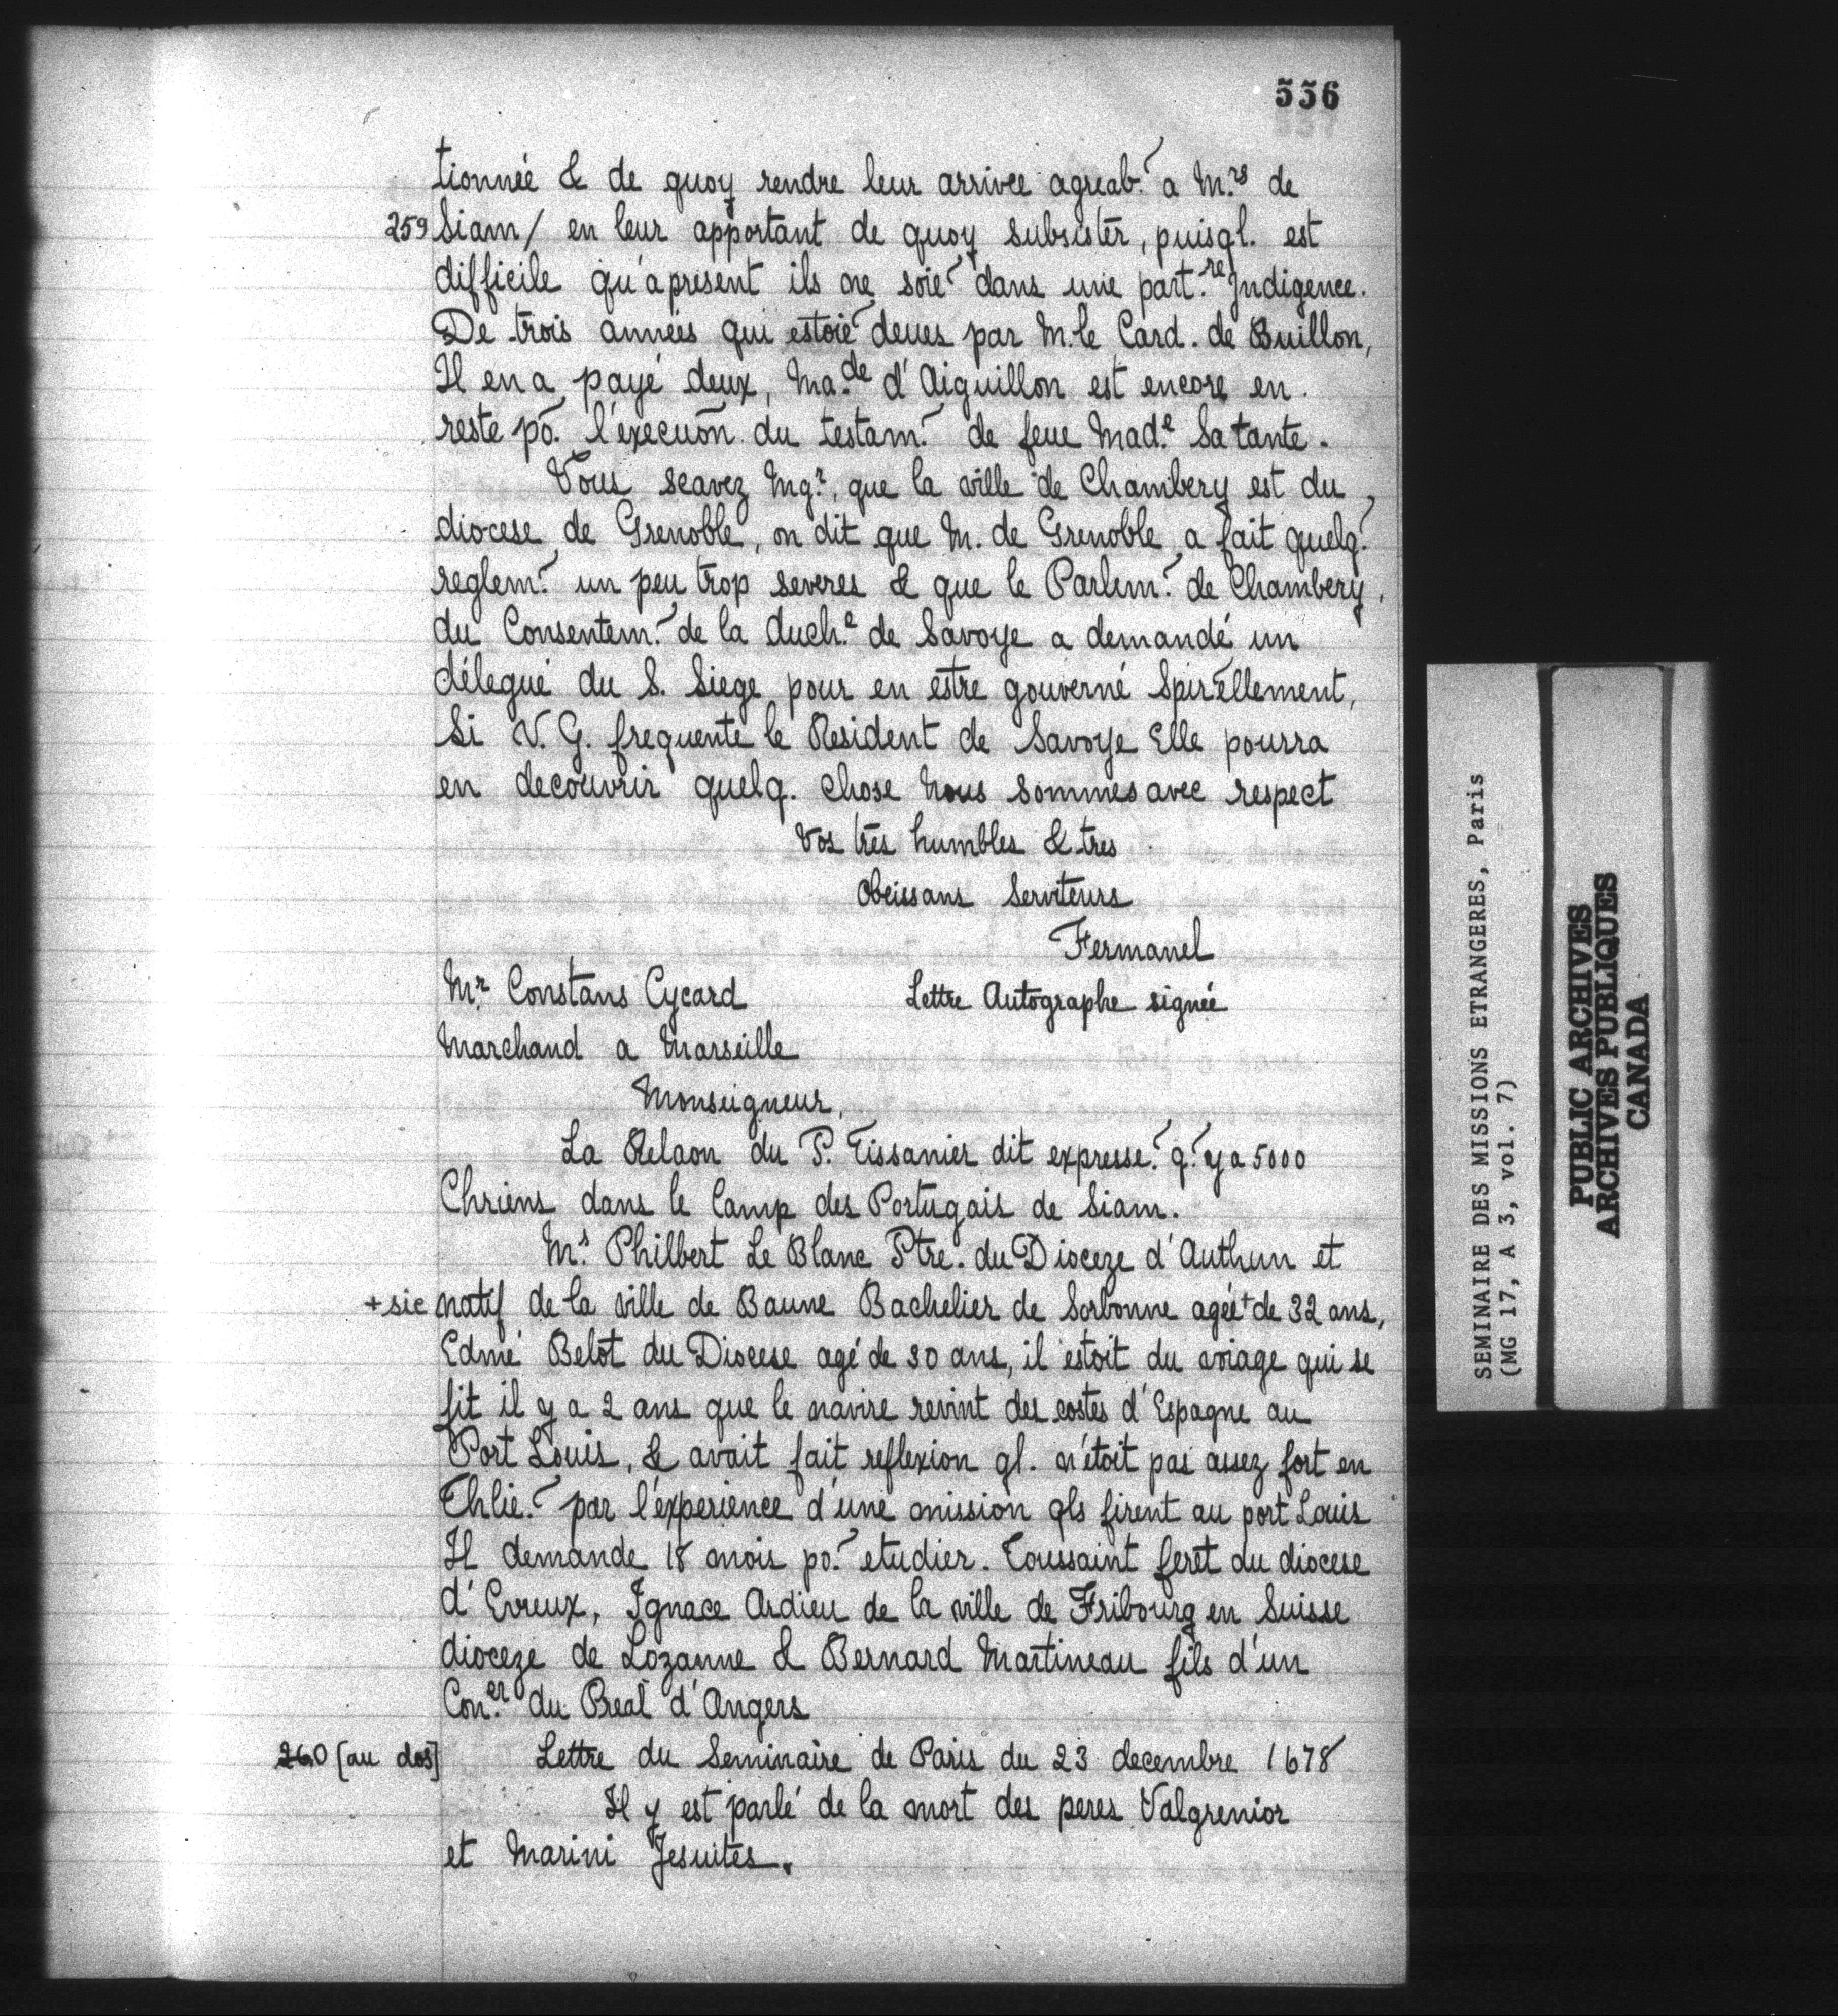 556
tionnée & de quoy rendre leur arrivee agreab.̃ a M.rs de
259 Siam / en leur apportant de quoy subsister, puisql. est
difficile qu'apresent ils ne soiẽ dans une part.re Indigence.
De trois années qui estoiẽ deues par M. le Card. de Buillon,
Il en a payé deux, Ma.de d'Aiguillon est encore en
reste põ. l'execuõn du testam.̃ de feue Mad.e Sa tante.
Vous scavez Mg.r, que la ville de Chambery est du
diocese de Grenoble, on dit que M. de Grenoble a fait quelq.̃
reglem.̃ un peu trop severes & que le Parlem.̃ de Chambery,
du Consentem.̃ de la Duch.e de Savoye a demandé un
délegué du S. Siege pour en estre gouverné Spirẽllement,
Si V. G. frequente le Resident de Savoye Elle pourra
en decouvrir quelq. chose Nous sommes avec respect
Vos tres humbles & tres
Obeissans Serviteurs
Fermanel
Mr Constans Cycard Lettre Autographe signée
Marchand a Marseille
Monseigneur,
La Relaon du P. Tissanier dit expresse.̃ q.̃ y a 5000
Chriens dans le Camp des Portugais de Siam.
M.s Philbert Le Blanc Ptre. du Dioceze d'Authun et
+ sic natif de la ville de Baune Bachelier de Sorbonne agée+ de 32 ans,
Edmé Belot du Diocese agé de 30 ans, il estoit du voiage qui se
fit il y a 2 ans que le navire revint des costes d'Espagne au
Port Louis, & avait fait reflexion ql. n'étoit pas assez fort en
Thlie.̃ par l'experience d'une mission qls firent au port Louis
Il demande 18 mois po.̃ etudier. Toussaint feret du diocese
d'Evreux, Ignace Ardieu de la ville de Fribourg en Suisse
dioceze de Lozanne & Bernard Martineau fils d'un
Con.er du Preal d'Angers
260 [au dos] Lettre du Seminaire de Paris du 23 decembre 1678
Il y est parlé de la mort des peres Valgrenior
et Marini Jesuites.
SEMINAIRE DES MISSIONS ETRANGERES, Paris
(MG 17, A 3, vol. 7)
PUBLIC ARCHIVES
ARCHIVES PUBLIQUES
CANADA